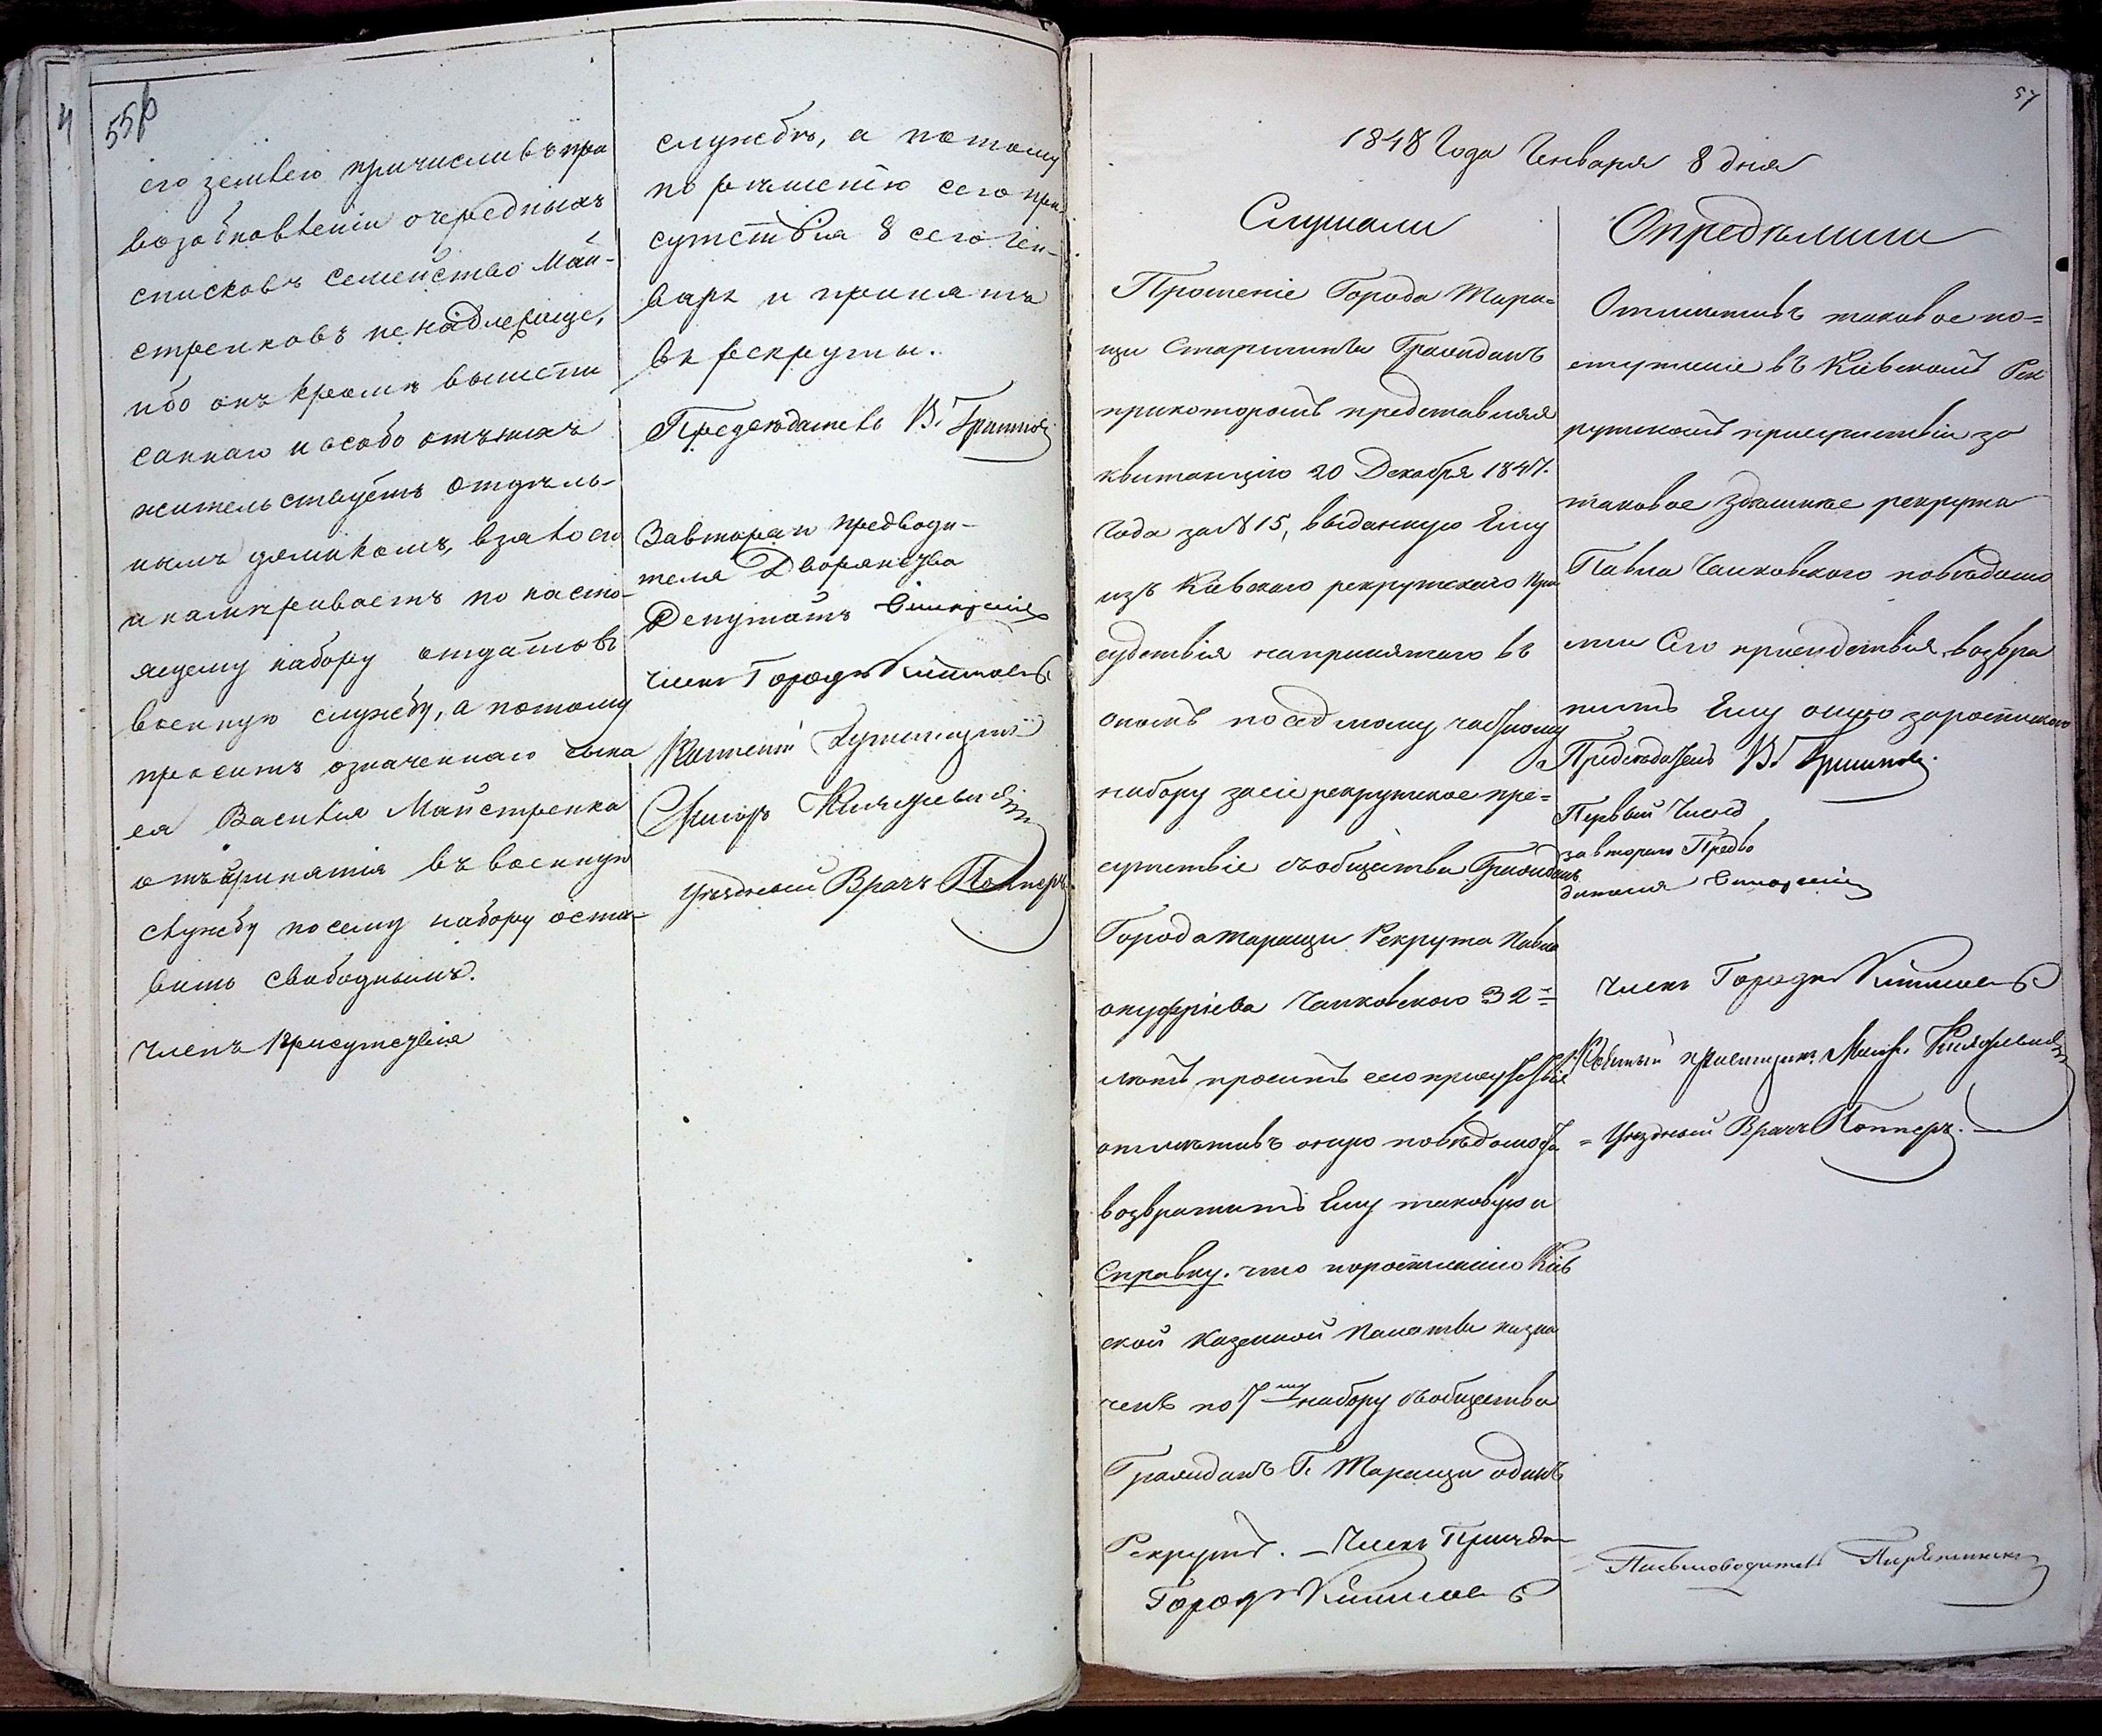 4
55 об
его землею причисливъ при
возобновленіи очередныхъ
списковъ семейство Май-
стренковъ не надлежаще,
ибо онъ кроме вышепи
саннаго и особо отъ нихъ
жительствуетъ отдѣль-
нымъ домикомъ, взялося
и намѣриваетъ по насто-
ящему набору отдать въ
военную службу, а потому
проситъ означеннаго сына
ея Василія Майстренка
отъ принятія въ военную
службу по сему набору оста-
вить свободнымъ.
Членъ Присутствія
службѣ, а потому
по рѣшенію сего при-
сутствія 8 сего Ген-
варя и принятъ
въ рекруты.
Председатель В.
За втораго предводи-
теля Дворянства
Депутатъ
Членъ Городн
Уездный Врачъ Коппертъ
57
1848 Года Генваря 8 дня
Слушали
Прошеніе Города Тара-
щи Старшины Гражданъ
при которомъ представляя
квитанцію 20 Декабря 1847.
Года за № 15, выданную Ему
изъ Кіевскаго рекрутскаго При
судствія на принятаго въ
ономъ по седмому частному
набору за сіе рекрутское при-
сутствіе съ общества Гражданъ
Города Таращи Рекрута Павла
Онуфріева Чайковского 32-
лѣтъ проситъ сего присутствія
отметивъ оную по вѣдомости
возвратить Ему таковую и
Справку. что по росписанію Кіев
ской Казенной Палаты назна
ченъ по 7му набору съ общества
Гражданъ Г. Таращи одинъ
Рекрутъ. — Членъ
Городн
Определили
Отметивъ таковое по-
ступленіе въ Кіевскомъ Рек
рутскомъ присутствіи за
таковое Зданіе рекрута
Павла Чайковского по вѣдомо
сти Сего присудствія, возвра
тить Ему оную за роспискою
Председатель В.
Первый Членъ
за втораго Предво
дителя
Членъ Городн
= Уездный Врачъ Коппертъ.
Письмоводитель